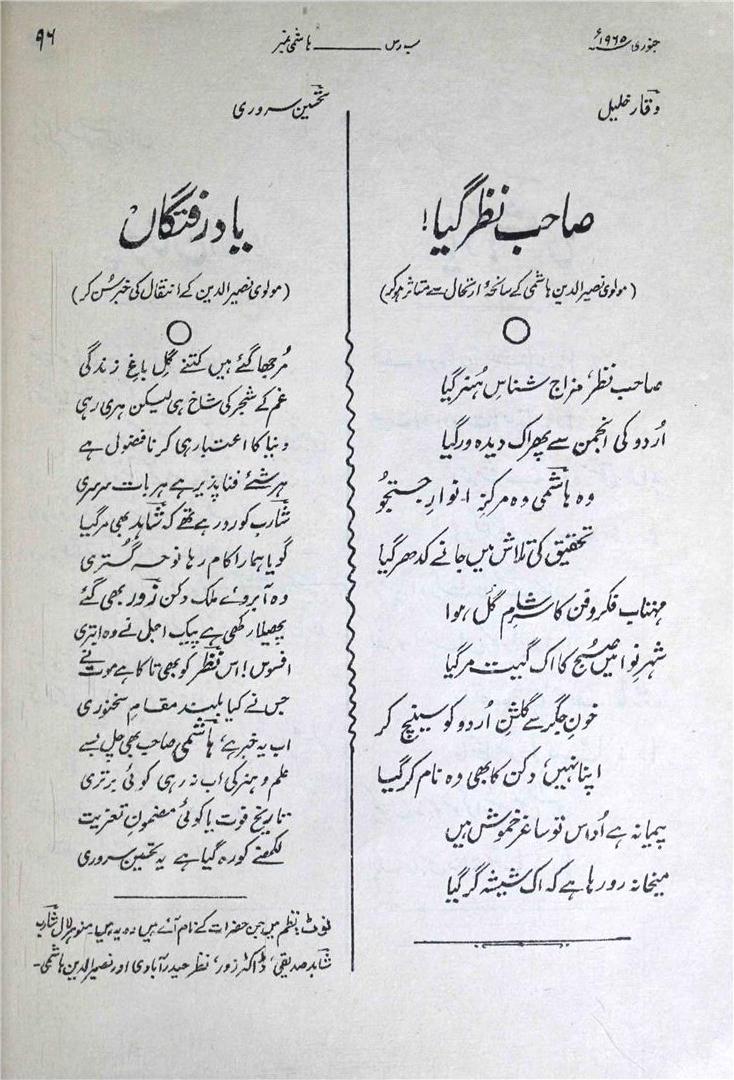 جنوری ۱۹۶۵ء
سب رس ــــــــ ہاشمی نمبر
۹۶
وقار خلیل
صاحبِ نظر گیا!
(مولوی نصیر الدین ہاشمی کے سانحۂ ارتحال سے متاثر ہو کر)
صاحب نظر، مزاج شناسِ ہُنر گیا
اُردو کی انجمن سے پھر اک دیدہ ور گیا
وہ ہاشمی وہ مرکزِ انوارِ جستجو
تحقیق کی تلاش میں جانے کدھر گیا
مہتاب فکر و فن کا سرِ شام گُل ہوا
شہرِ نوا میں صبح کا اک گیت مر گیا
خونِ جگر سے گلشنِ اُردو کو سینچ کر
اپنا نہیں، دکن کا بھی وہ نام کر گیا
پیمانہ ہے اُداس تو ساغر خموش ہیں
میخانہ رو رہا ہے کہ اک شیشہ گر گیا
تحسین سروری
یادِ رفتگاں
(مولوی نصیر الدین کے انتقال کی خبر سُن کر)
مُرجھا گئے ہیں کتنے گُلِ باغِ زندگی
غم کے شجر کی شاخ ہی لیکن ہری رہی
دنیا کا اعتبار ہی کرنا فضول ہے
ہر شئے فنا پذیر ہے ہر بات سرسری
شارب کو رو رہے تھے کہ شاہد بھی مر گیا
گویا ہمارا کام رہا نوحہ گُستری
وہ آبروئے ملک دکن زور بھی گئے
پھیلا رکھی ہے پیک اجل نے وہ ابتری
افسوس! اس نظر کو بھی تاکا ہے موت نے
جس نے کیا بلند مقامِ سخنوری
اب یہ خبر ہے، ہاشمی صاحب بھی چل بسے
علم و ہنر کی اب نہ رہی کوئی برتری
تاریخِ فوت یا کوئی مضمونِ تعزیت
لکھنے کو رہ گیا ہے یہ تحسین سروری
نوٹ: نظم میں جن حضرات کے نام آئے ہیں وہ یہ ہیں۔ منوہر لال شارب
شاہد صدیقی، ڈاکٹر زور، نظر حیدرآبادی اور نصیر الدین ہاشمی۔